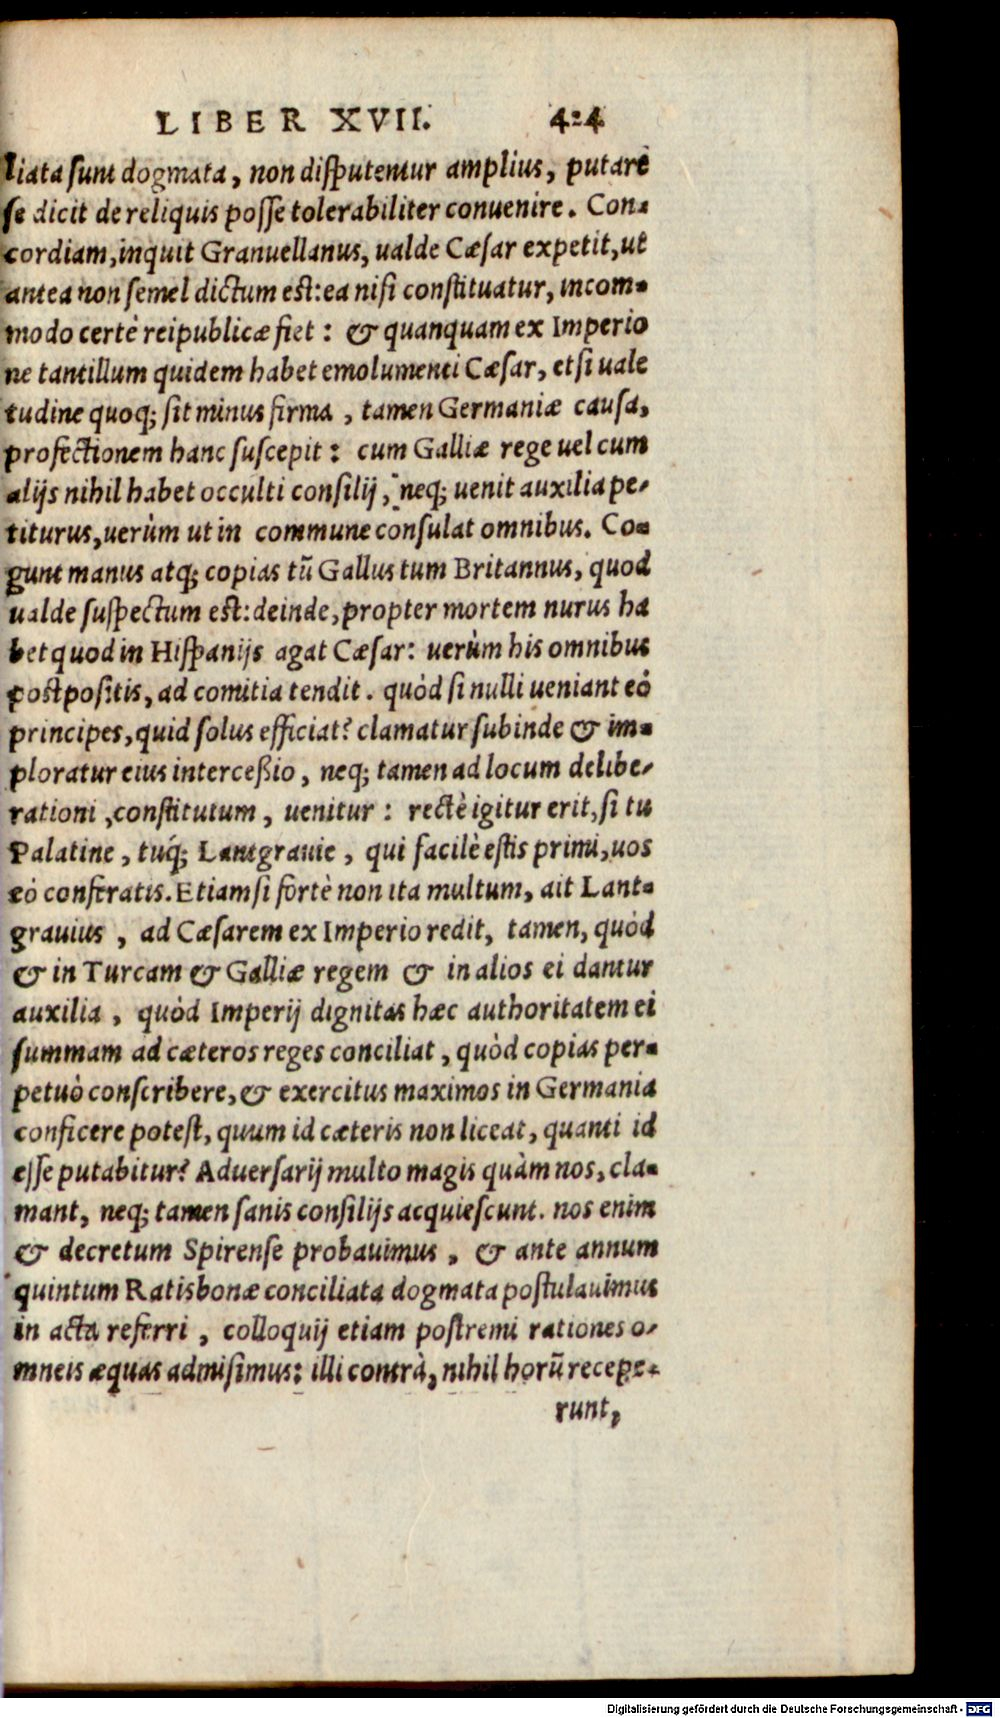 LIBER XVII. 424
liata sunt dogmata, non disputentur amplius, putare
se dicit de reliquis posse tolerabiliter conuenire. Con-
cordiam, inquit Granuellanus, ualde Cæsar expetit, ut
antea non semel dictum est: ea nisi constituatur, incom-
modo certè reipublicæ fiet: & quanquam ex Imperio
ne tantillum quidem habet emolumenti Cæsar, etsi uale
tudine quoq; sit minus firma, tamen Germaniæ causa,
profectionem hanc suscepit: cum Galliæ rege uel cum
alijs nihil habet occulti consilij, neq; uenit auxilia pe-
titurus, uerùm ut in commune consulat omnibus. Co-
gunt manus atq; copias tū Gallus tum Britannus, quod
ualde suspectum est: deinde, propter mortem nurus ha
bet quod in Hispanijs agat Cæsar: uerùm his omnibus
postpositis, ad comitia tendit. quòd si nulli ueniant eò
principes, quid solus efficiat? clamatur subinde & im-
ploratur eius interceßio, neq; tamen ad locum delibe-
rationi, constitutum, uenitur: rectè igitur erit, si tu
Palatine, tuq́; Lantgrauie, qui facilè estis primi, uos
eò conferatis. Etiamsi fortè non ita multum, ait Lant-
grauius, ad Cæsarem ex Imperio redit, tamen, quòd
& in Turcam & Galliæ regem & in alios ei dantur
auxilia, quòd Imperij dignitas hæc authoritatem ei
summam ad cæteros reges conciliat, quòd copias per-
petuò conscribere, & exercitus maximos in Germania
conficere potest, quum id cæteris non liceat, quanti id
esse putabitur? Aduersarij multo magis quàm nos, cla-
mant, neq; tamen sanis consilijs acquiescunt. nos enim
& decretum Spirense probauimus, & ante annum
quintum Ratisbonæ conciliata dogmata postulauimus
in acta referri, colloquij etiam postremi rationes o-
mneis æquas admisimus: illi contrà, nihil horū recepe-
runt,
Digitalisierung gefördert durch die Deutsche Forschungsgemeinschaft - DFG